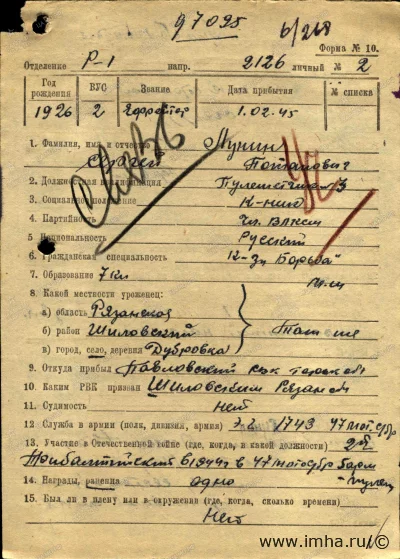 97025
Форма № 10.
Отделение Р-1 напр. 2126 личный № 2
Год рождения ВУС Звание Дата прибытия № списка
1926 2 Ефрейтор 1.02.45
1. Фамилия, имя и отчество Лунин
Сергей Потапович
2. Должностная квалификация Пулеметчик
3. Социальное положение К-ник
4. Партийность Чл. ВЛКСМ
5. Национальность Русский
6. Гражданская специальность К-З "Борьба"
7. Образование 7 кл
8. Какой местности уроженец:
а) область Рязанская
б) район Шиловский
в) город, село, деревня Дубровка
Там же
9. Откуда прибыл
10. Каким РВК призван Шиловским Рязан обл
11. Судимость Нет
12. Служба в армии (полк, дивизия, армия) 1743 47 мот сбр
13. Участие в Отечественной войне (где, когда, в какой должности)
Прибалтийский в 1944 г в 47 мото сбр
14. Награды, ранения одно
15. Был ли в плену или в окружении (где, когда, сколько времени)
Нет
www.imha.ru/©